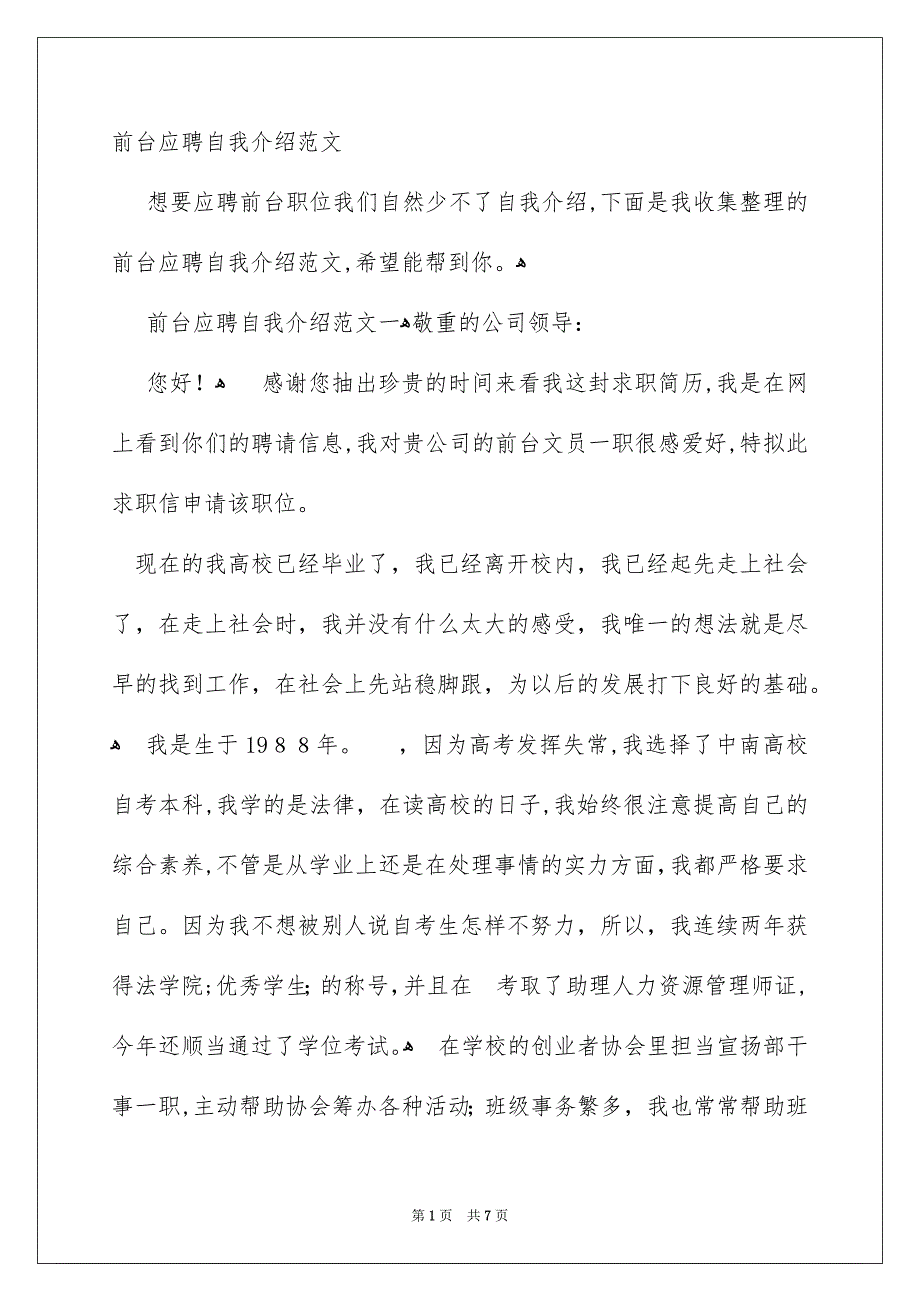 前台应聘自我介绍范文
想要应聘前台职位我们自然少不了自我介绍,下面是我收集整理的
前台应聘自我介绍范文,希望能帮到你。ﻫ
前台应聘自我介绍范文一ﻫ敬重的公司领导：
您好！ﻫ 感谢您抽出珍贵的时间来看我这封求职简历,我是在网
上看到你们的聘请信息,我对贵公司的前台文员一职很感爱好,特拟此
求职信申请该职位。
现在的我高校已经毕业了，我已经离开校内，我已经起先走上社会
了，在走上社会时，我并没有什么太大的感受，我唯一的想法就是尽
早的找到工作，在社会上先站稳脚跟，为以后的发展打下良好的基础。
ﻫ 我是生于19８８年。 ，因为高考发挥失常,我选择了中南高校
自考本科,我学的是法律，在读高校的日子,我始终很注意提高自己的
综合素养,不管是从学业上还是在处理事情的实力方面,我都严格要求
自己。因为我不想被别人说自考生怎样不努力，所以，我连续两年获
得法学院;优秀学生;的称号,并且在 考取了助理人力资源管理师证,
今年还顺当通过了学位考试。ﻫ 在学校的创业者协会里担当宣扬部干
事一职,主动帮助协会筹办各种活动;班级事务繁多，我也常常帮助班
第1页 共7页